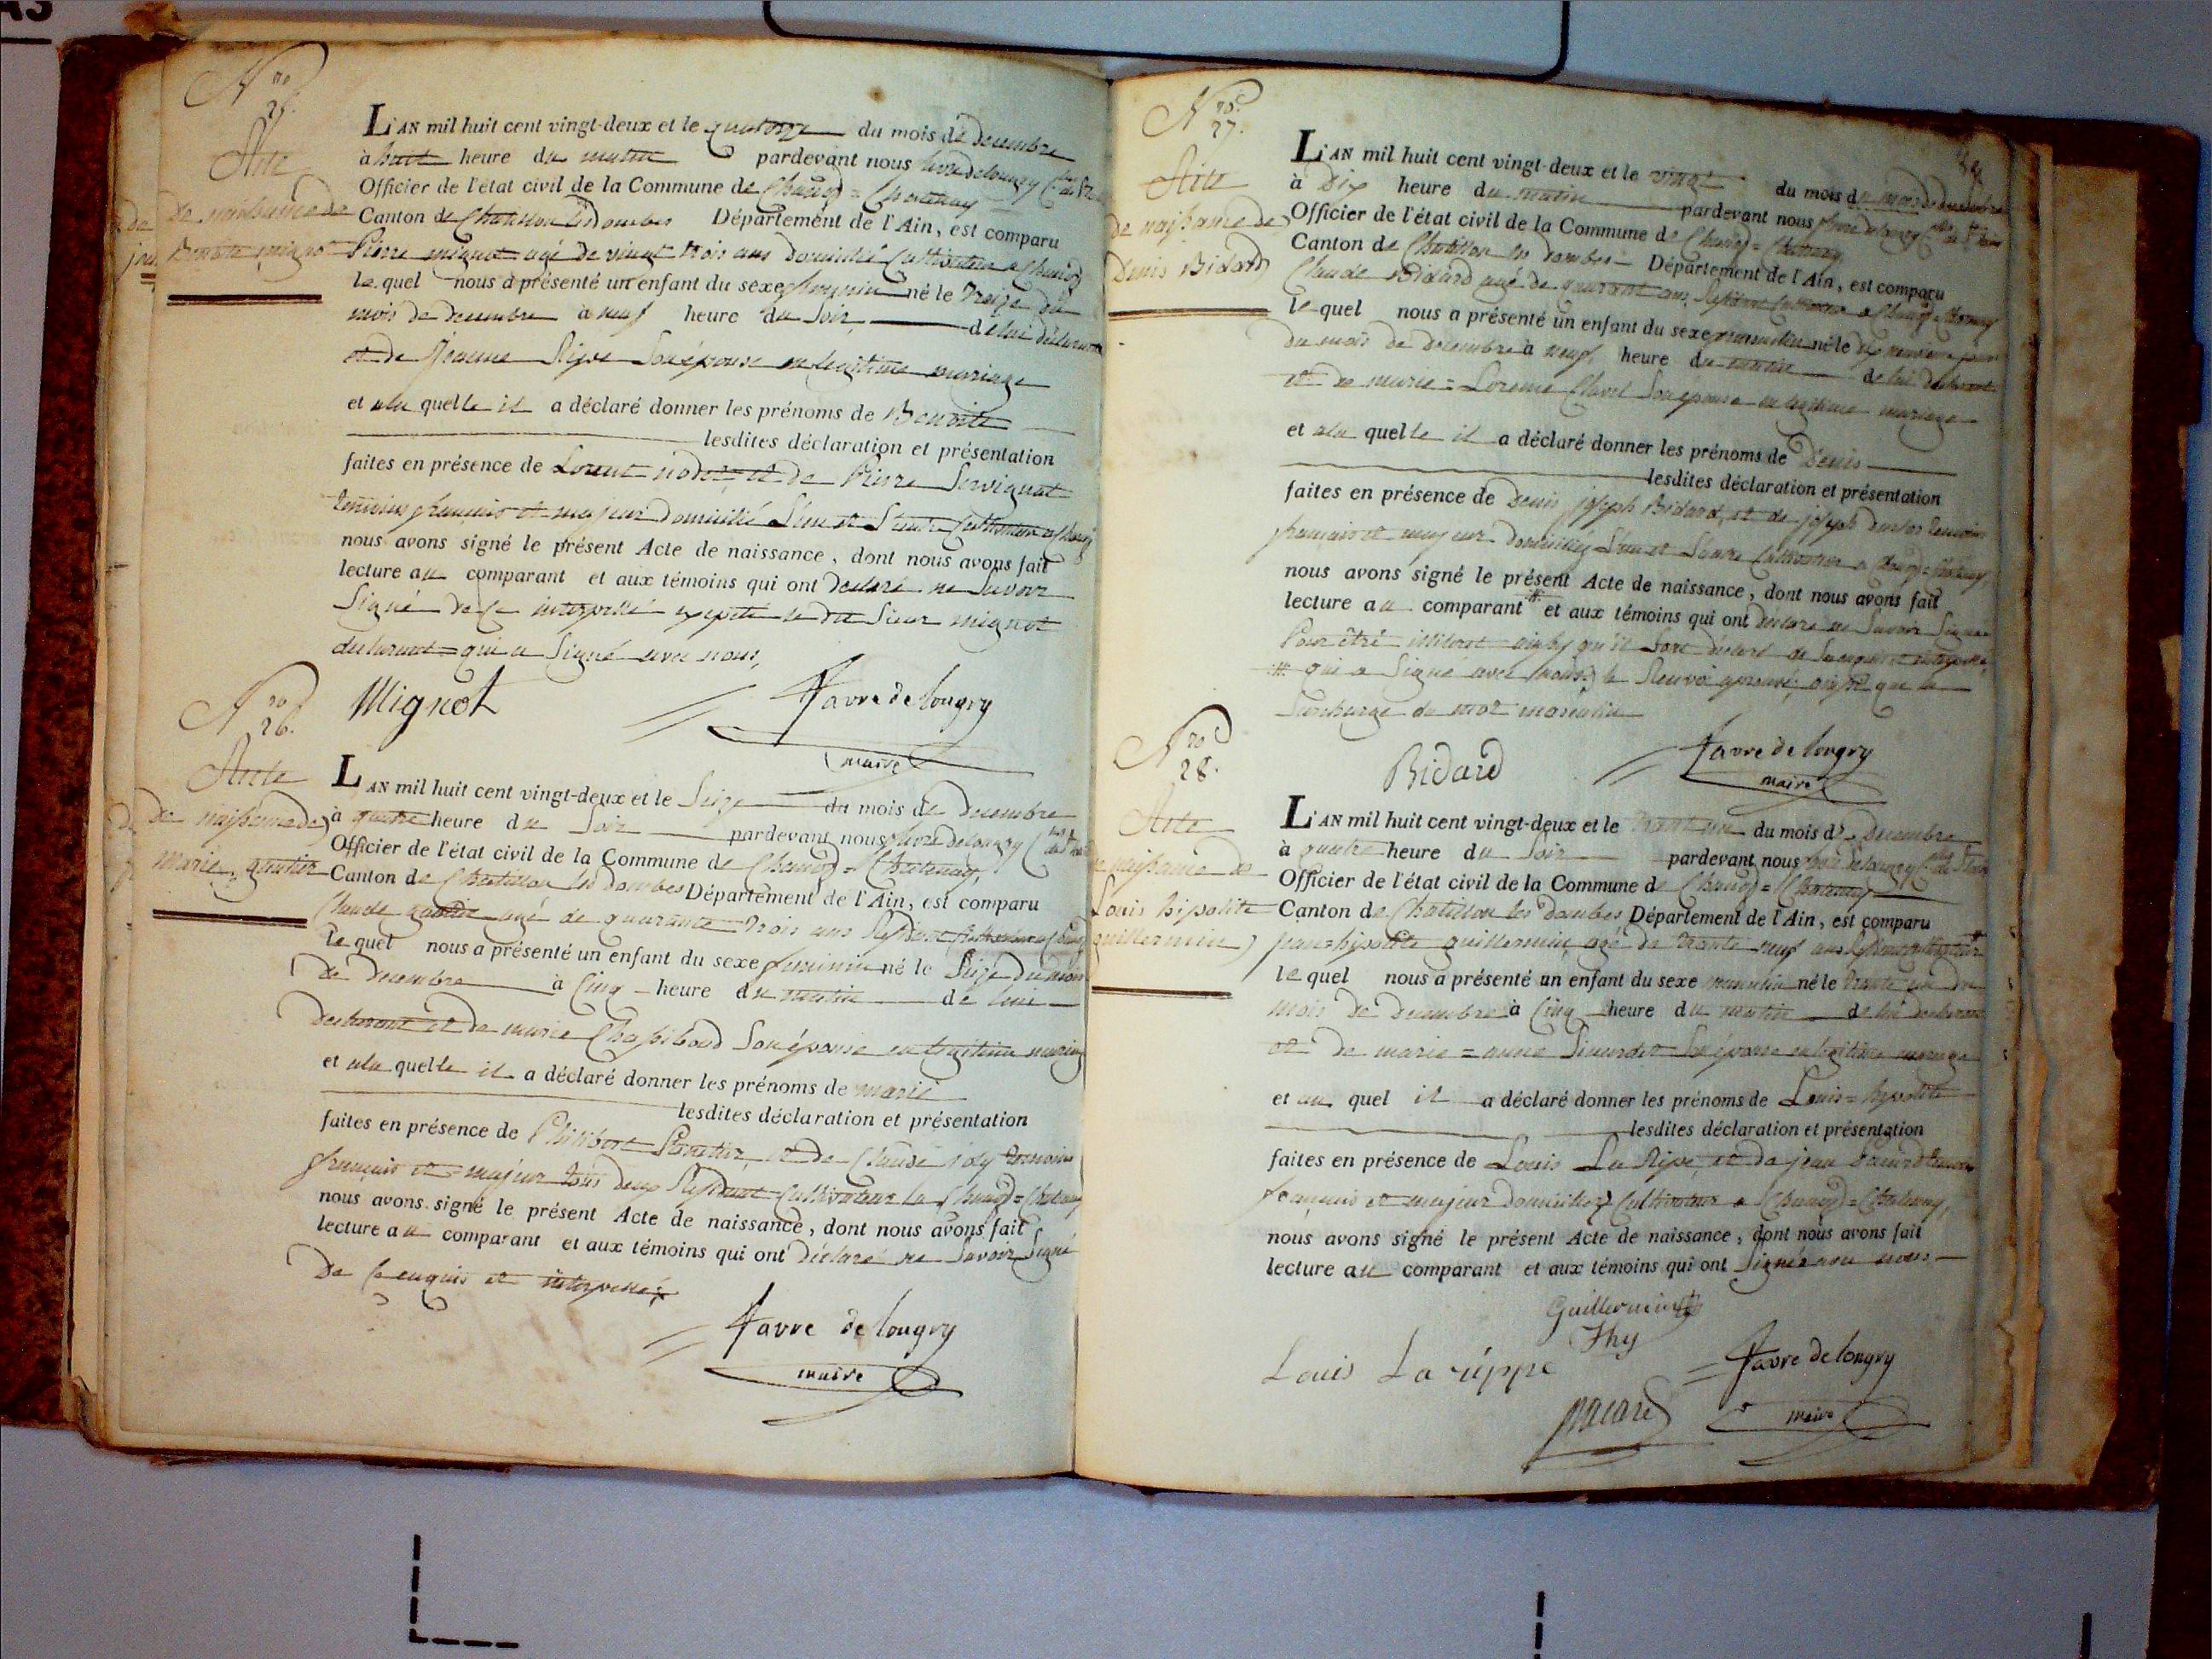 A3
N.ro
25.
Acte
De naissance de
Benoite mignot
L'AN mil huit cent vingt-deux et le quatorze du mois de decembre
à huit heure du matin pardevant nous favre delongry
Officier de l'état civil de la Commune de Chaneÿ = Chatenay
Canton de Chatillon les dombes Département de l'Ain, est comparu
Pierre mignot agé de vingt trois ans domicilié Cultivateur a
le quel nous a présenté un enfant du sexe feminin né le treize du
mois de decembre à neuf heure du soir de lui déclarant
et de Jeanne Son épouse en legitime mariage
et a la quelle il a déclaré donner les prénoms de Benoite
lesdites déclaration et présentation
faites en présence de Lorent et de Pierre Servignat
temoins français et majeur domicilié L'un et L'autre Cultivateur a
nous avons signé le présent Acte de naissance, dont nous avons fait
lecture au comparant et aux témoins qui ont declaré ne Savoir
Signé de Ce interpellé excepté le dit Sieur mignot
declarant = qui a Signé avec nous,
Mignot
favre de longry
maire
N.ro
26.
Acte
De naissance de
marie gautier
L'AN mil huit cent vingt-deux et le Seize du mois de decembre
à quatre heure du Soir pardevant nous favre delongry
Officier de l'état civil de la Commune de Chaneÿ = Chatenay,
Canton de Chatillon les dombes Département de l'Ain, est comparu
Claude gautier agé de quarante trois ans
le quel nous a présenté un enfant du sexe feminin né le Seize du mois
de decembre à Cinq heure du matin de lui
declarant et de marie Chassiboud Son épouse en legitime mariage
et a la quelle il a déclaré donner les prénoms de marie
lesdites déclaration et présentation
faites en présence de Philibert et de Claude joly temoins
français et = majeur tous deux Cultivateur
nous avons signé le présent Acte de naissance, dont nous avons fait
lecture au comparant et aux témoins qui ont déclaré ne Savoir Signé
De Ce enquis et interpellé
favre de longry
maire
N.ro
27.
Acte
de naissance de
Denis Bidard
L'AN mil huit cent vingt-deux et le vingt du mois de
à Dix heure du matin pardevant nous favre delongry
Officier de l'état civil de la Commune de Chaneÿ = Chatenay
Canton de Chatillon les dombes Département de l'Ain, est comparu
Claude Bidard agé de quarante ans
le quel nous a présenté un enfant du sexe masculin né le dix neuvieme jour
du mois de decembre à neuf heure du matin de lui declarant
et de marie = Lorence Clavel Son épouse en legitime mariage
et a la quelle il a déclaré donner les prénoms de Denis
lesdites déclaration et présentation
faites en présence de Denis joseph Bidard, et de joseph temoins
français et majeur domiciliés L'un et L'autre Cultivateur a Chaneÿ = Chatenay
nous avons signé le présent Acte de naissance, dont nous avons fait
lecture au comparant # et aux témoins qui ont declaré ne Savoir Signé
Pour être illiteré qu'il
# qui a Signé avec nous, le Renvoi aprouvé, que la
Surcharge du mot masculin
Bidard
favre de longry
maire
N.ro
28.
Acte
de naissance de
Louis hipolite
guillermin
L'AN mil huit cent vingt-deux et le trente un du mois de decembre
à quatre heure du Soir pardevant nous favre delongry
Officier de l'état civil de la Commune de Chaneÿ = Chatenay
Canton de Chatillon les dombes Département de l'Ain, est comparu
jean = hipolite guillermin agé de trente neuf ans
le quel nous a présenté un enfant du sexe masculin né le trente un du
mois de decembre à Cinq heure du matin de lui declarant
et de marie = anne Son épouse en legitime mariage
et au quel il a déclaré donner les prénoms de Louis = hipolite
lesdites déclaration et présentation
faites en présence de Louis La Rippe et de jean temoins
français et majeur domiciliés Cultivateur a Chaneÿ = Chatenay,
nous avons signé le présent Acte de naissance, dont nous avons fait
lecture au comparant et aux témoins qui ont Signé avec nous
Guillermin
Thy
Louis La rippe
favre de longry
maire